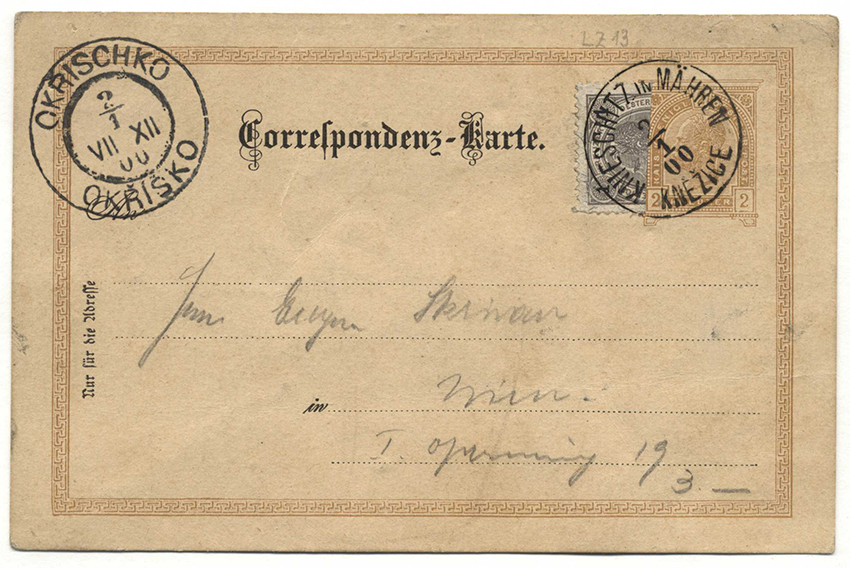 LZ 13
OKŘISCHKO
2/1
VII XII
00
OKŘÍŠKO
Correspondenz-Karte.
KNIESCHITZ IN MÄHREN
2/1
00
KNĚŽICE
2 2
An
Nur für die Adresse
Herrn Eugen
in Wien.
I. Opernring 19
3. —